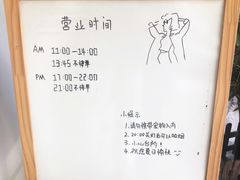 营业时间
AM 11:00-14:00
13:45 不接单
PM 17:00-22:00
21:00 不接单
小提示
1.请勿携带宠物入内
2.20:00
3.小心台阶!
4.祝您夏日愉快